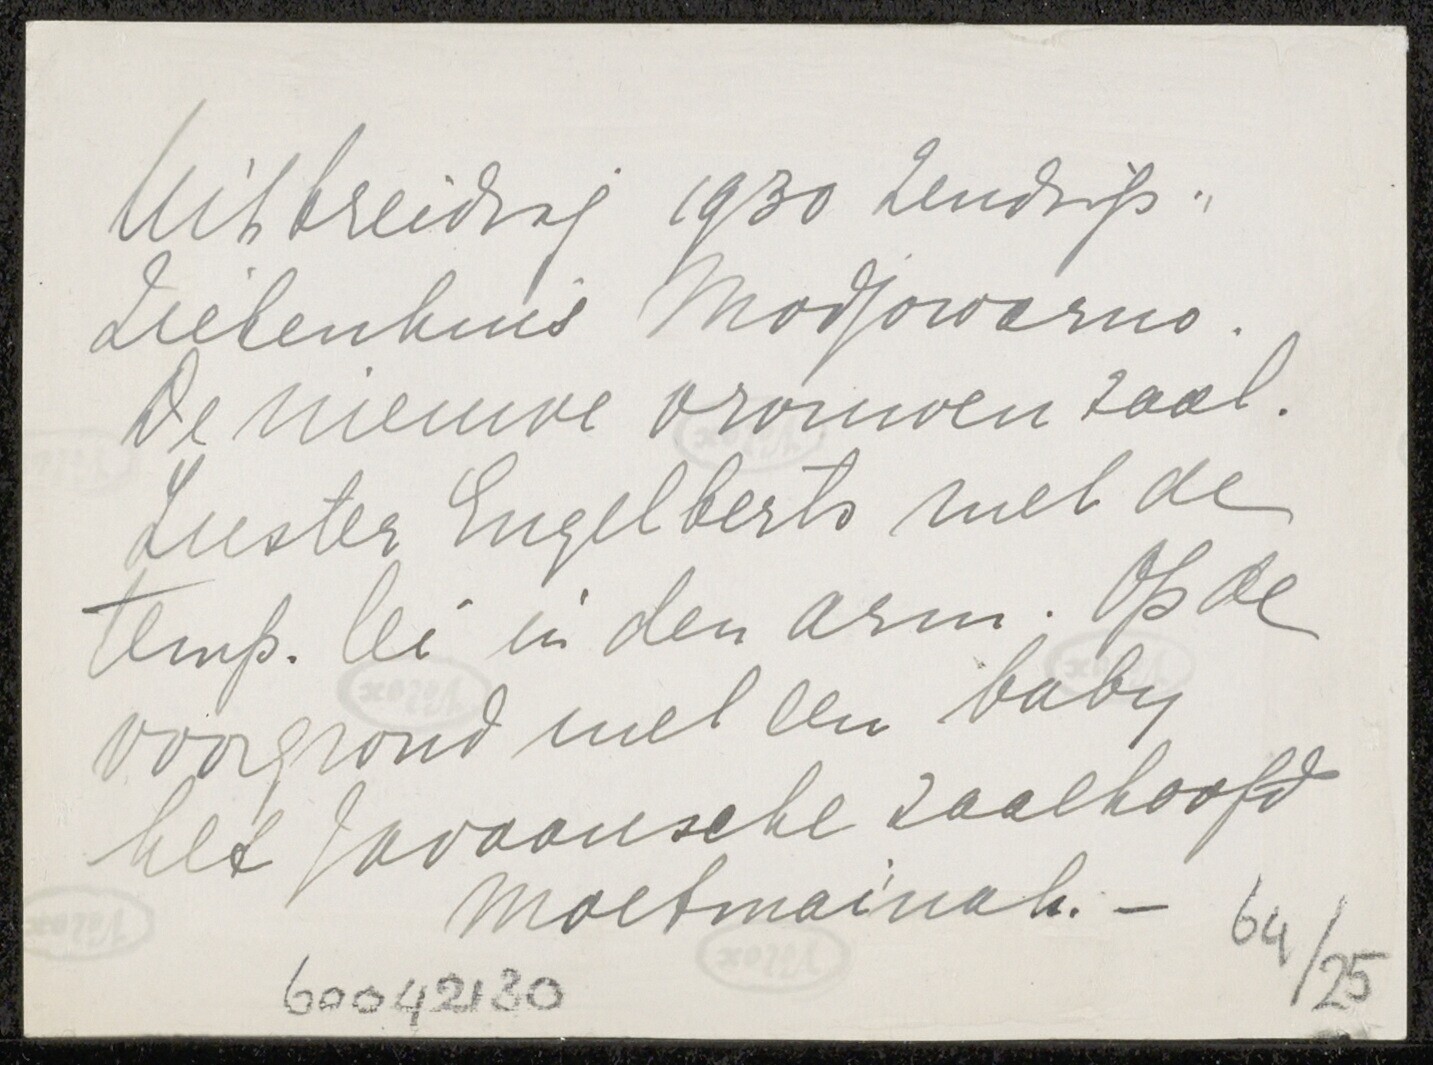 Uitbreiding 1930 Zendings-
Ziekenhuis Modjowarno.
De nieuwe vrouwen zaal.
Zuster Engelberts met de
temp. lei in den arm. Op de
voorgrond met een baby
het Javaansche zaalhoofd
Moetmainah. –
64/25
60042130
Velox
Velox
Velox
Velox
Velox
Velox